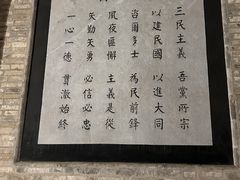 三民主義 吾黨所宗
以建民國 以進大同
咨爾多士 為民前鋒
夙夜匪懈 主義是從
矢勤矢勇 必信必忠
一心一德 貫徹始終